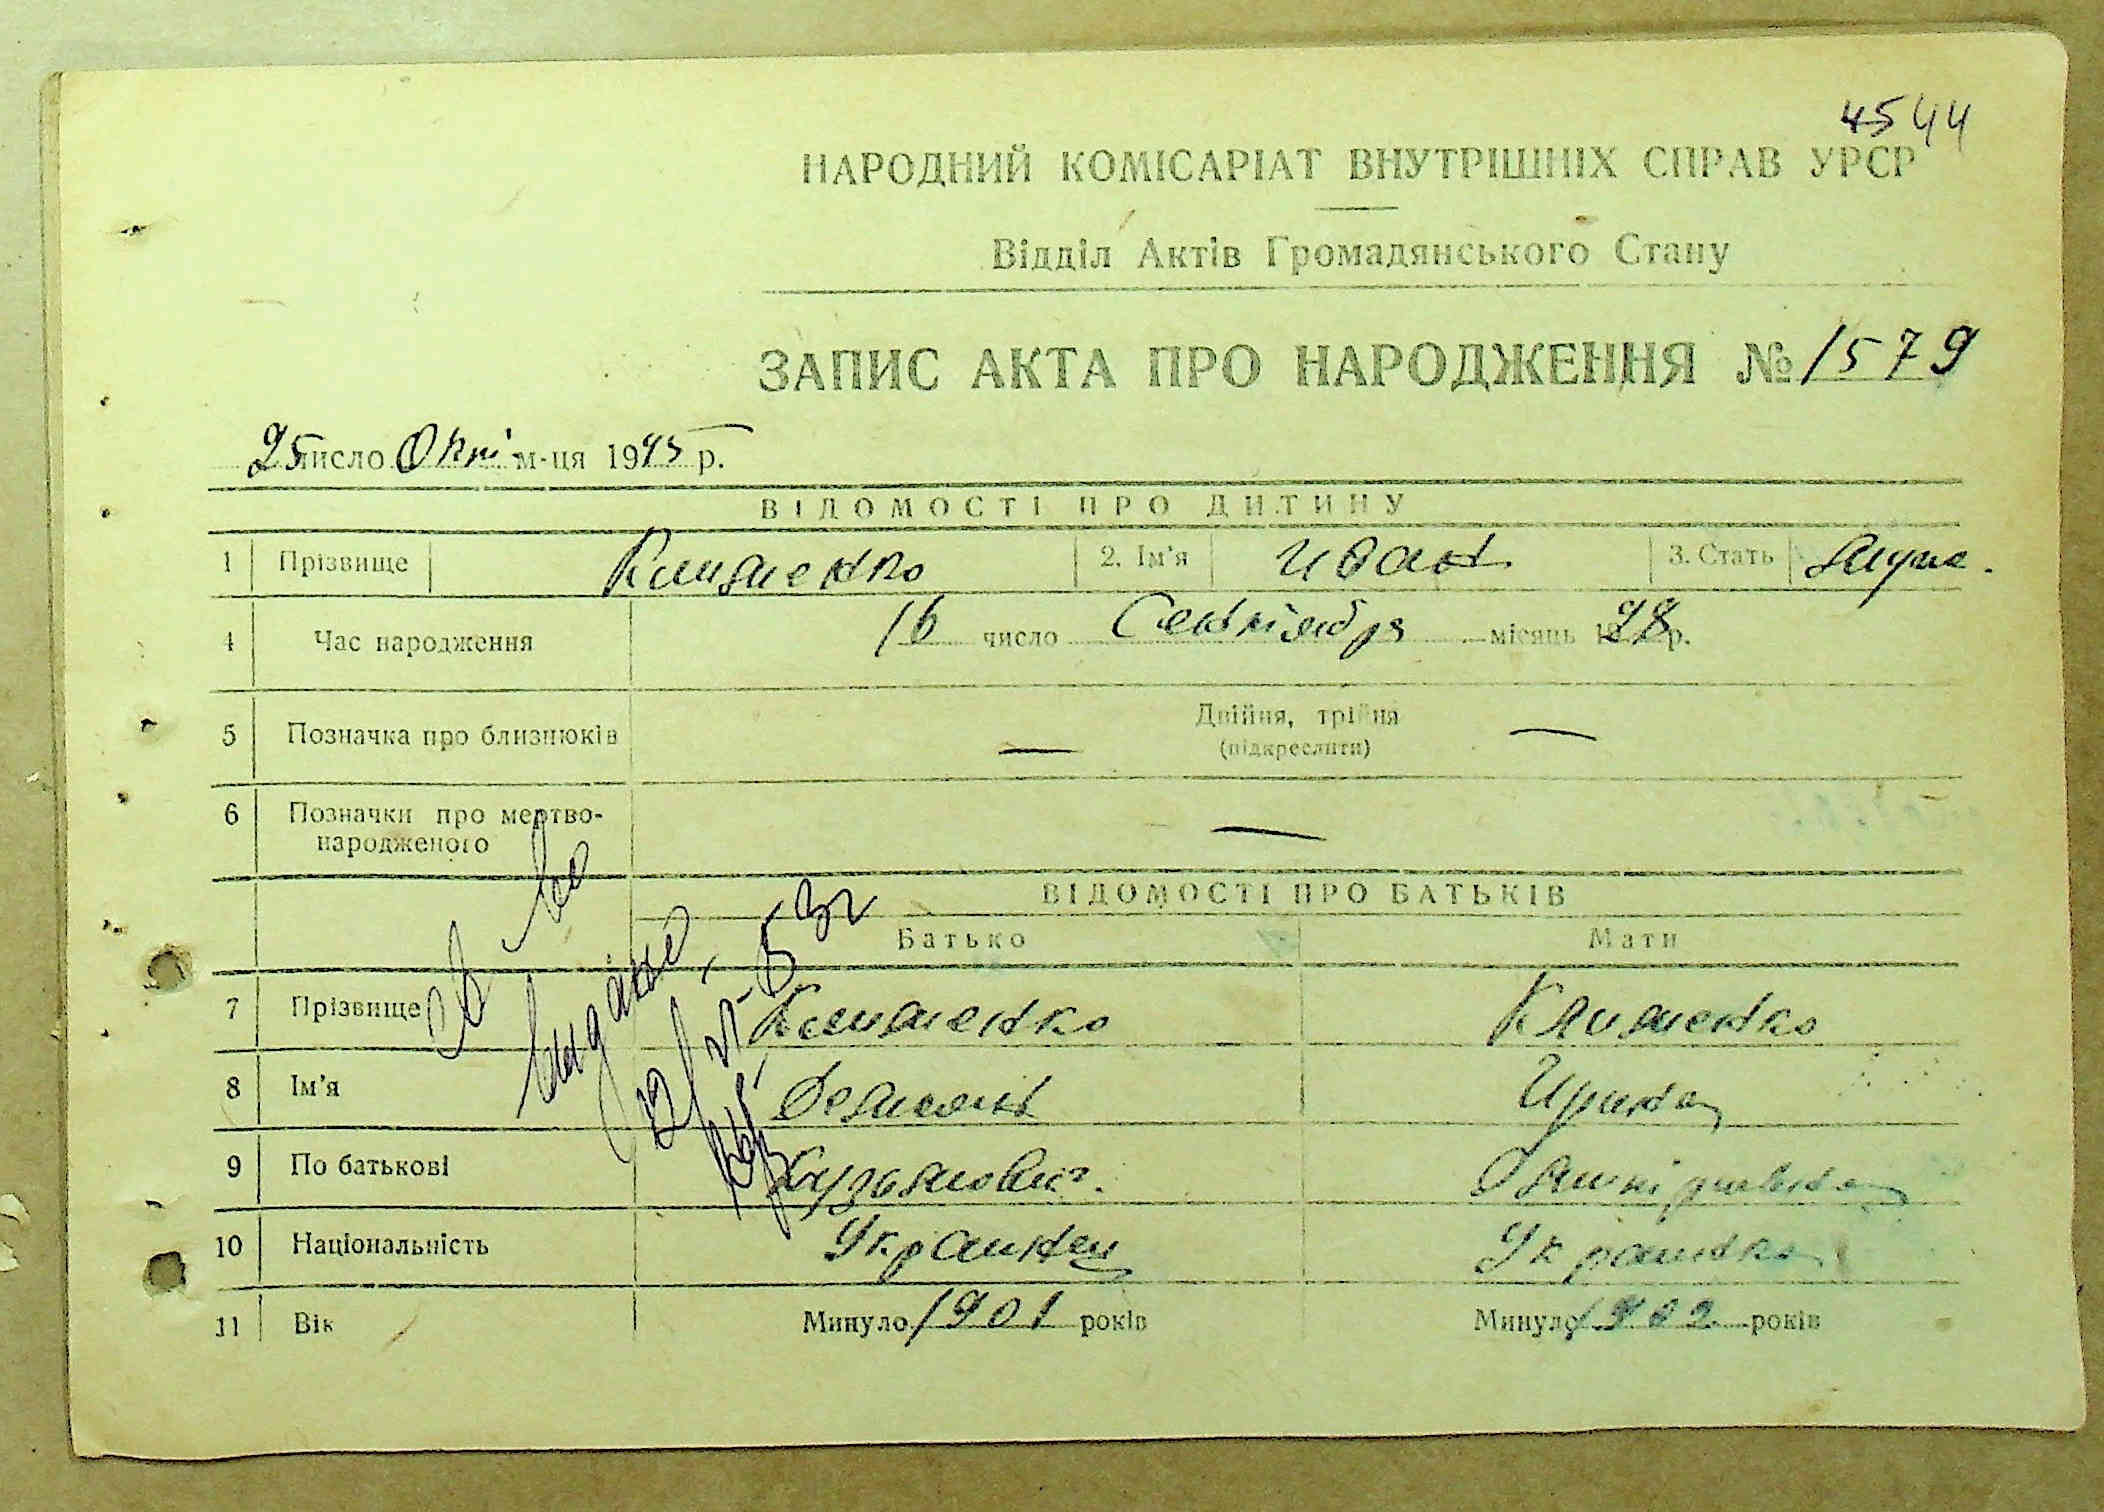 4544
НАРОДНИЙ КОМІСАРІАТ ВНУТРІШНІХ СПРАВ УРСР
Відділ Актів Громадянського Стану
ЗАПИС АКТА ПРО НАРОДЖЕННЯ № 1579
25 число Окт. м-ця 1945 р.
ВІДОМОСТІ ПРО ДИТИНУ
1 Прізвище Клименко 2. Ім'я Иван 3. Стать муж.
4 Час народження 16 число Сентября місяць 1928 р.
5 Позначка про близнюків — Двійня, трійня —
(підкреслити)
6 Позначки про мертво-
народженого —
ВІДОМОСТІ ПРО БАТЬКІВ
Батько Мати
7 Прізвище Клименко Клименко
8 Ім'я Демьян Ирина
9 По батькові Кузьмович. Дмитриевна
10 Національність Украинец Украинка
11 Вік Минуло 1901 років Минуло 1902 років
св-во
выдано